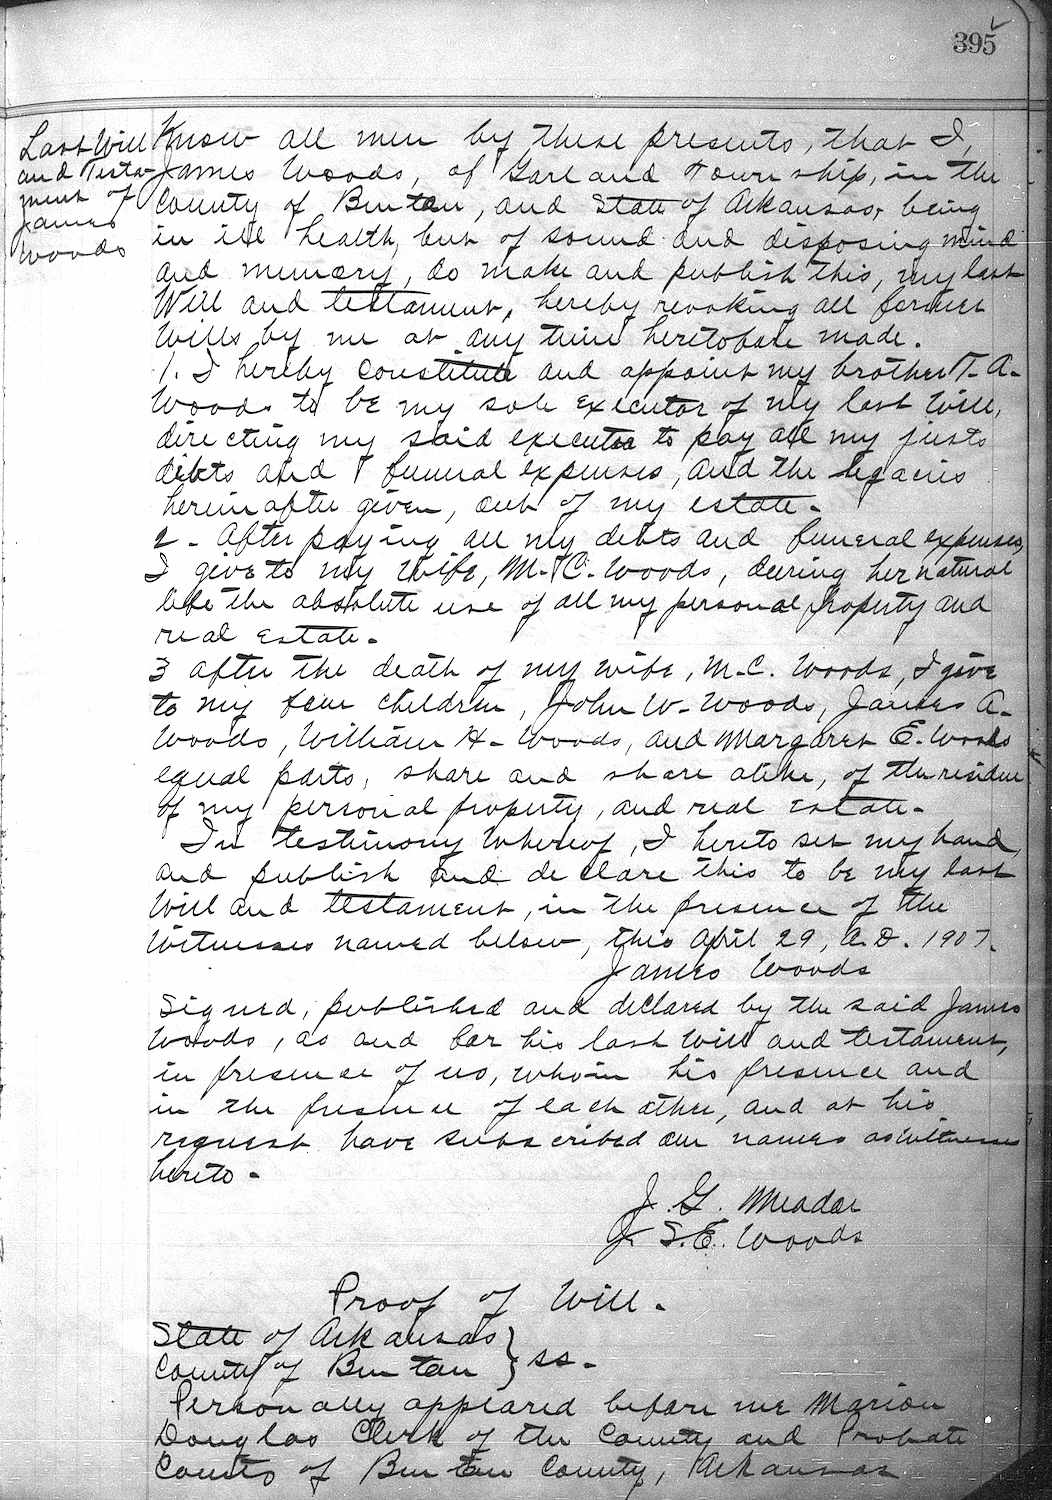 395
Last Will
and Testa-
ment of
James
Woods
Know all men by these presents, that I,
James Woods, of Garland Township, in the
County of Benton, and State of Arkansas, being
in ill health, but of sound and disposing mind
and memory, do make and publish this, my last
Will and testament, hereby revoking all former
Wills by me at any time heretofore made.
1. I hereby constitute and appoint my brother T. A.
Woods to be my sole executor of my last Will,
directing my said executor to pay all my justs
debts and funeral expenses, and the legacies
hereinafter given, out of my estate.
2 - After paying all my debts and funeral expenses,
I give to my Wife, M. C. Woods, during her natural
life the absolute use of all my personal property and
real estate.
3 after the death of my wife, M. C. Woods, I give
to my four children, John W. Woods, James A.
Woods, William H. Woods, and Margaret E. Woods
equal parts, share and share alike, of the residue
of my personal property, and real estate.
In testimony Whereof, I hereto set my hand,
and publish and declare this to be my last
Will and testament, in the presence of the
Witnesses named below, this April 29, A.D. 1907.
James Woods
Signed, published and declared by the said James
Woods, as and for his last Will and testament,
in presence of us, who in his presence and
in the presence of each other, and at his
request have subscribed our names as Witnesses
hereto -
J. G. Meador
J. S. E. Woods
Proof of Will.
State of Arkansas }
County of Benton } ss.
Personally appeared before me Marion
Douglas Clerk of the County and Probate
Courts of Benton County, Arkansas